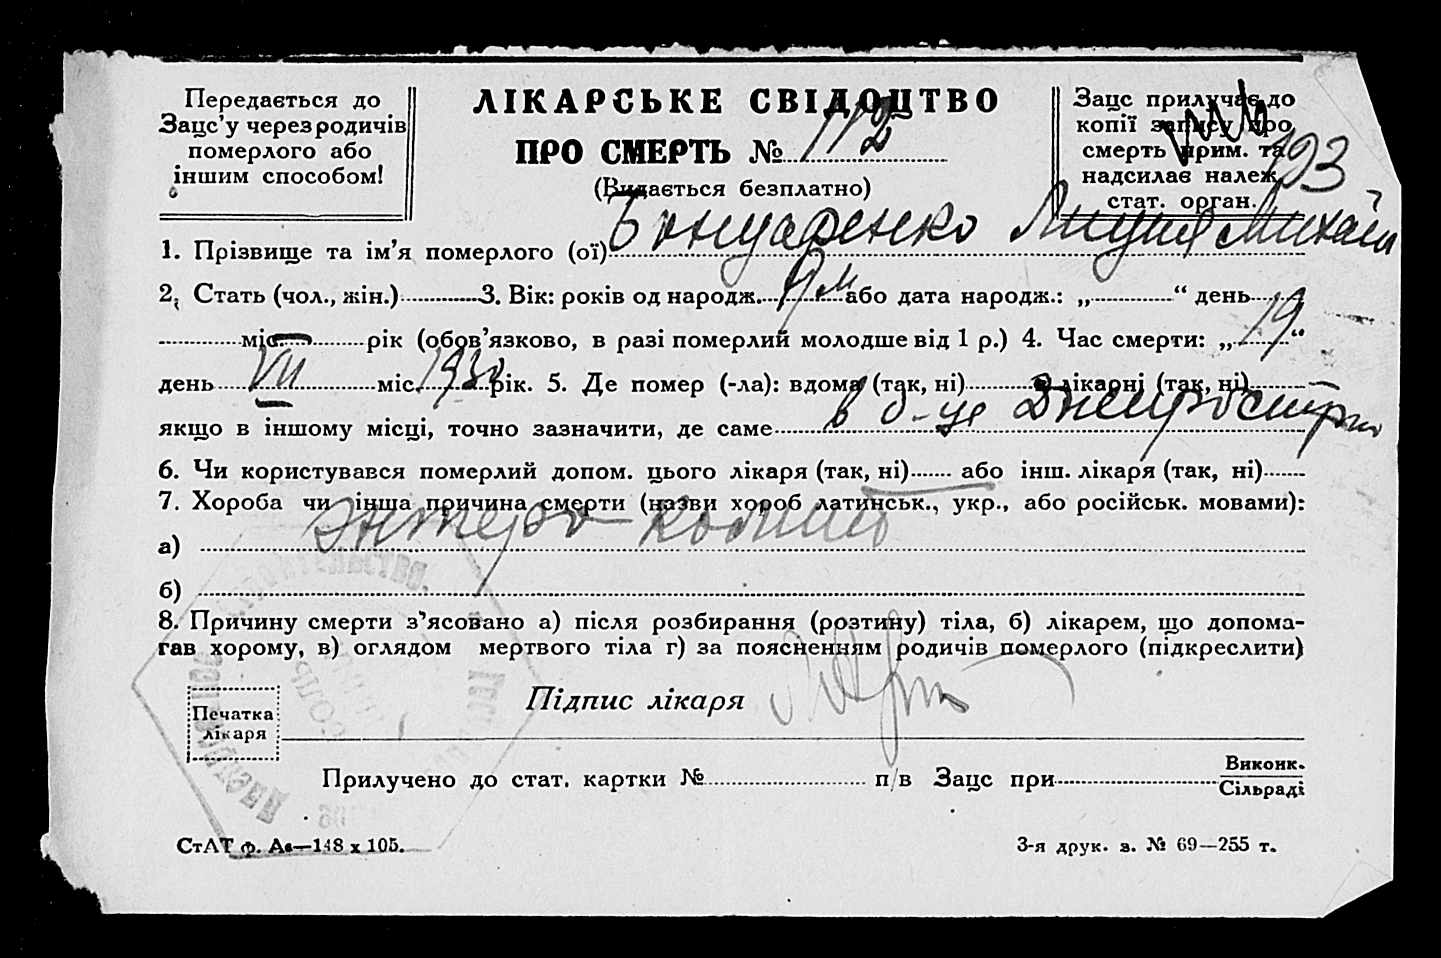 Передається до
Зацс'у через родичів
померлого або
іншим способом!
ЛІКАРСЬКЕ СВІДОЦТВО
ПРО СМЕРТЬ № 112
(Видається безплатно)
Зацс прилучає до
копії запису про
смерть прим. та
надсилає належ.
стат. орган.
193
1. Прізвище та ім'я померлого (ої) Бондаренко
2. Стать (чол., жін.) 3. Вік: років од народж. 9 м або дата народж.: „ “ день
міс. рік (обов'язково, в разі померлий молодше від 1 р.) 4. Час смерти: „ 19 “
день VII міс. 1930 рік. 5. Де помер (-ла): вдома (так, ні) в лікарні (так, ні)
якщо в іншому місці, точно зазначити, де саме в б-це
6. Чи користувався померлий допом. цього лікаря (так, ні) або інш. лікаря (так, ні)
7. Хороба чи інша причина смерти (назви хороб латинськ., укр., або російськ. мовами):
а) Энтеро-колит
б)
8. Причину смерти з'ясовано а) після розбирання (розтину) тіла, б) лікарем, що допома-
гав хорому, в) оглядом мертвого тіла г) за поясненням родичів померлого (підкреслити)
Підпис лікаря
Печатка
лікаря
Прилучено до стат. картки № п/в Зацс при Виконк.
Сільраді
СтАТ ф. Ав—148 х 105.
3-я друк. з. № 69—255 т.